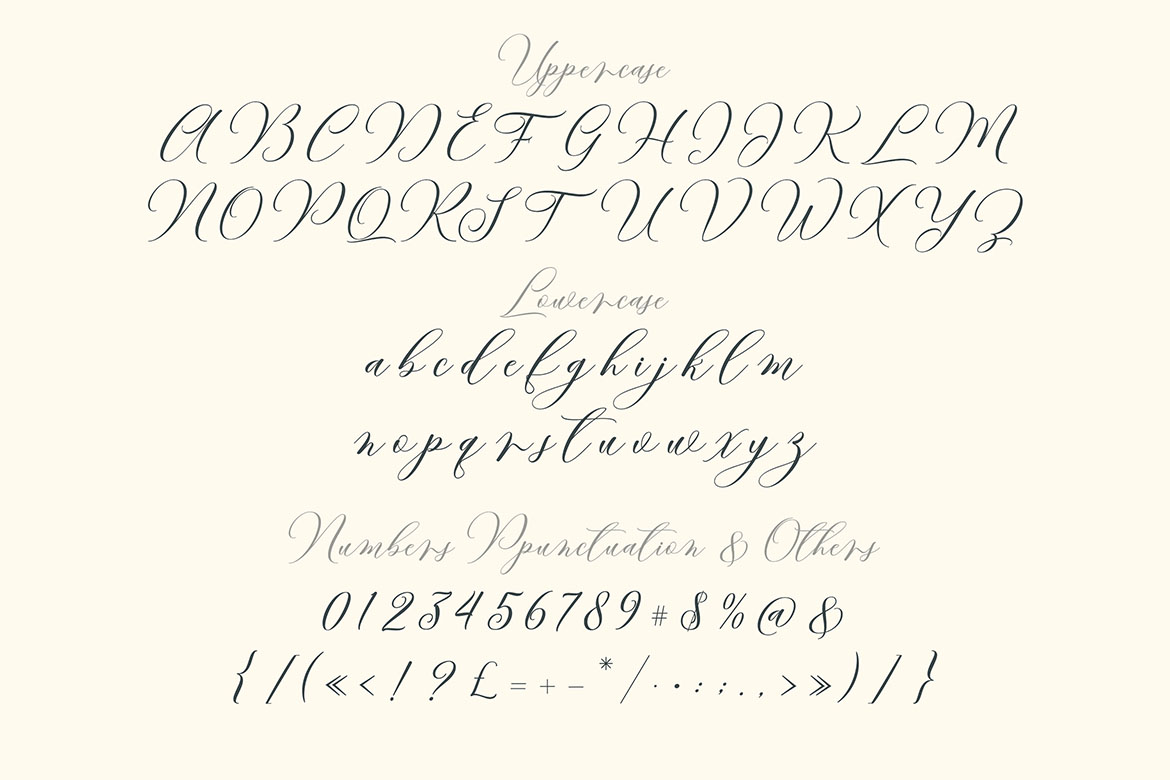 Uppercase
A B C D E F G H I J K L M
N O P Q R S T U V W X Y Z
Lowercase
a b c d e f g h i j k l m
n o p q r s t u v w x y z
Numbers Ppunctuation & Others
0 1 2 3 4 5 6 7 8 9 # $ % @ &
{ / ( « < ! ? £ = + − * / · • : ; . , > » ) / }